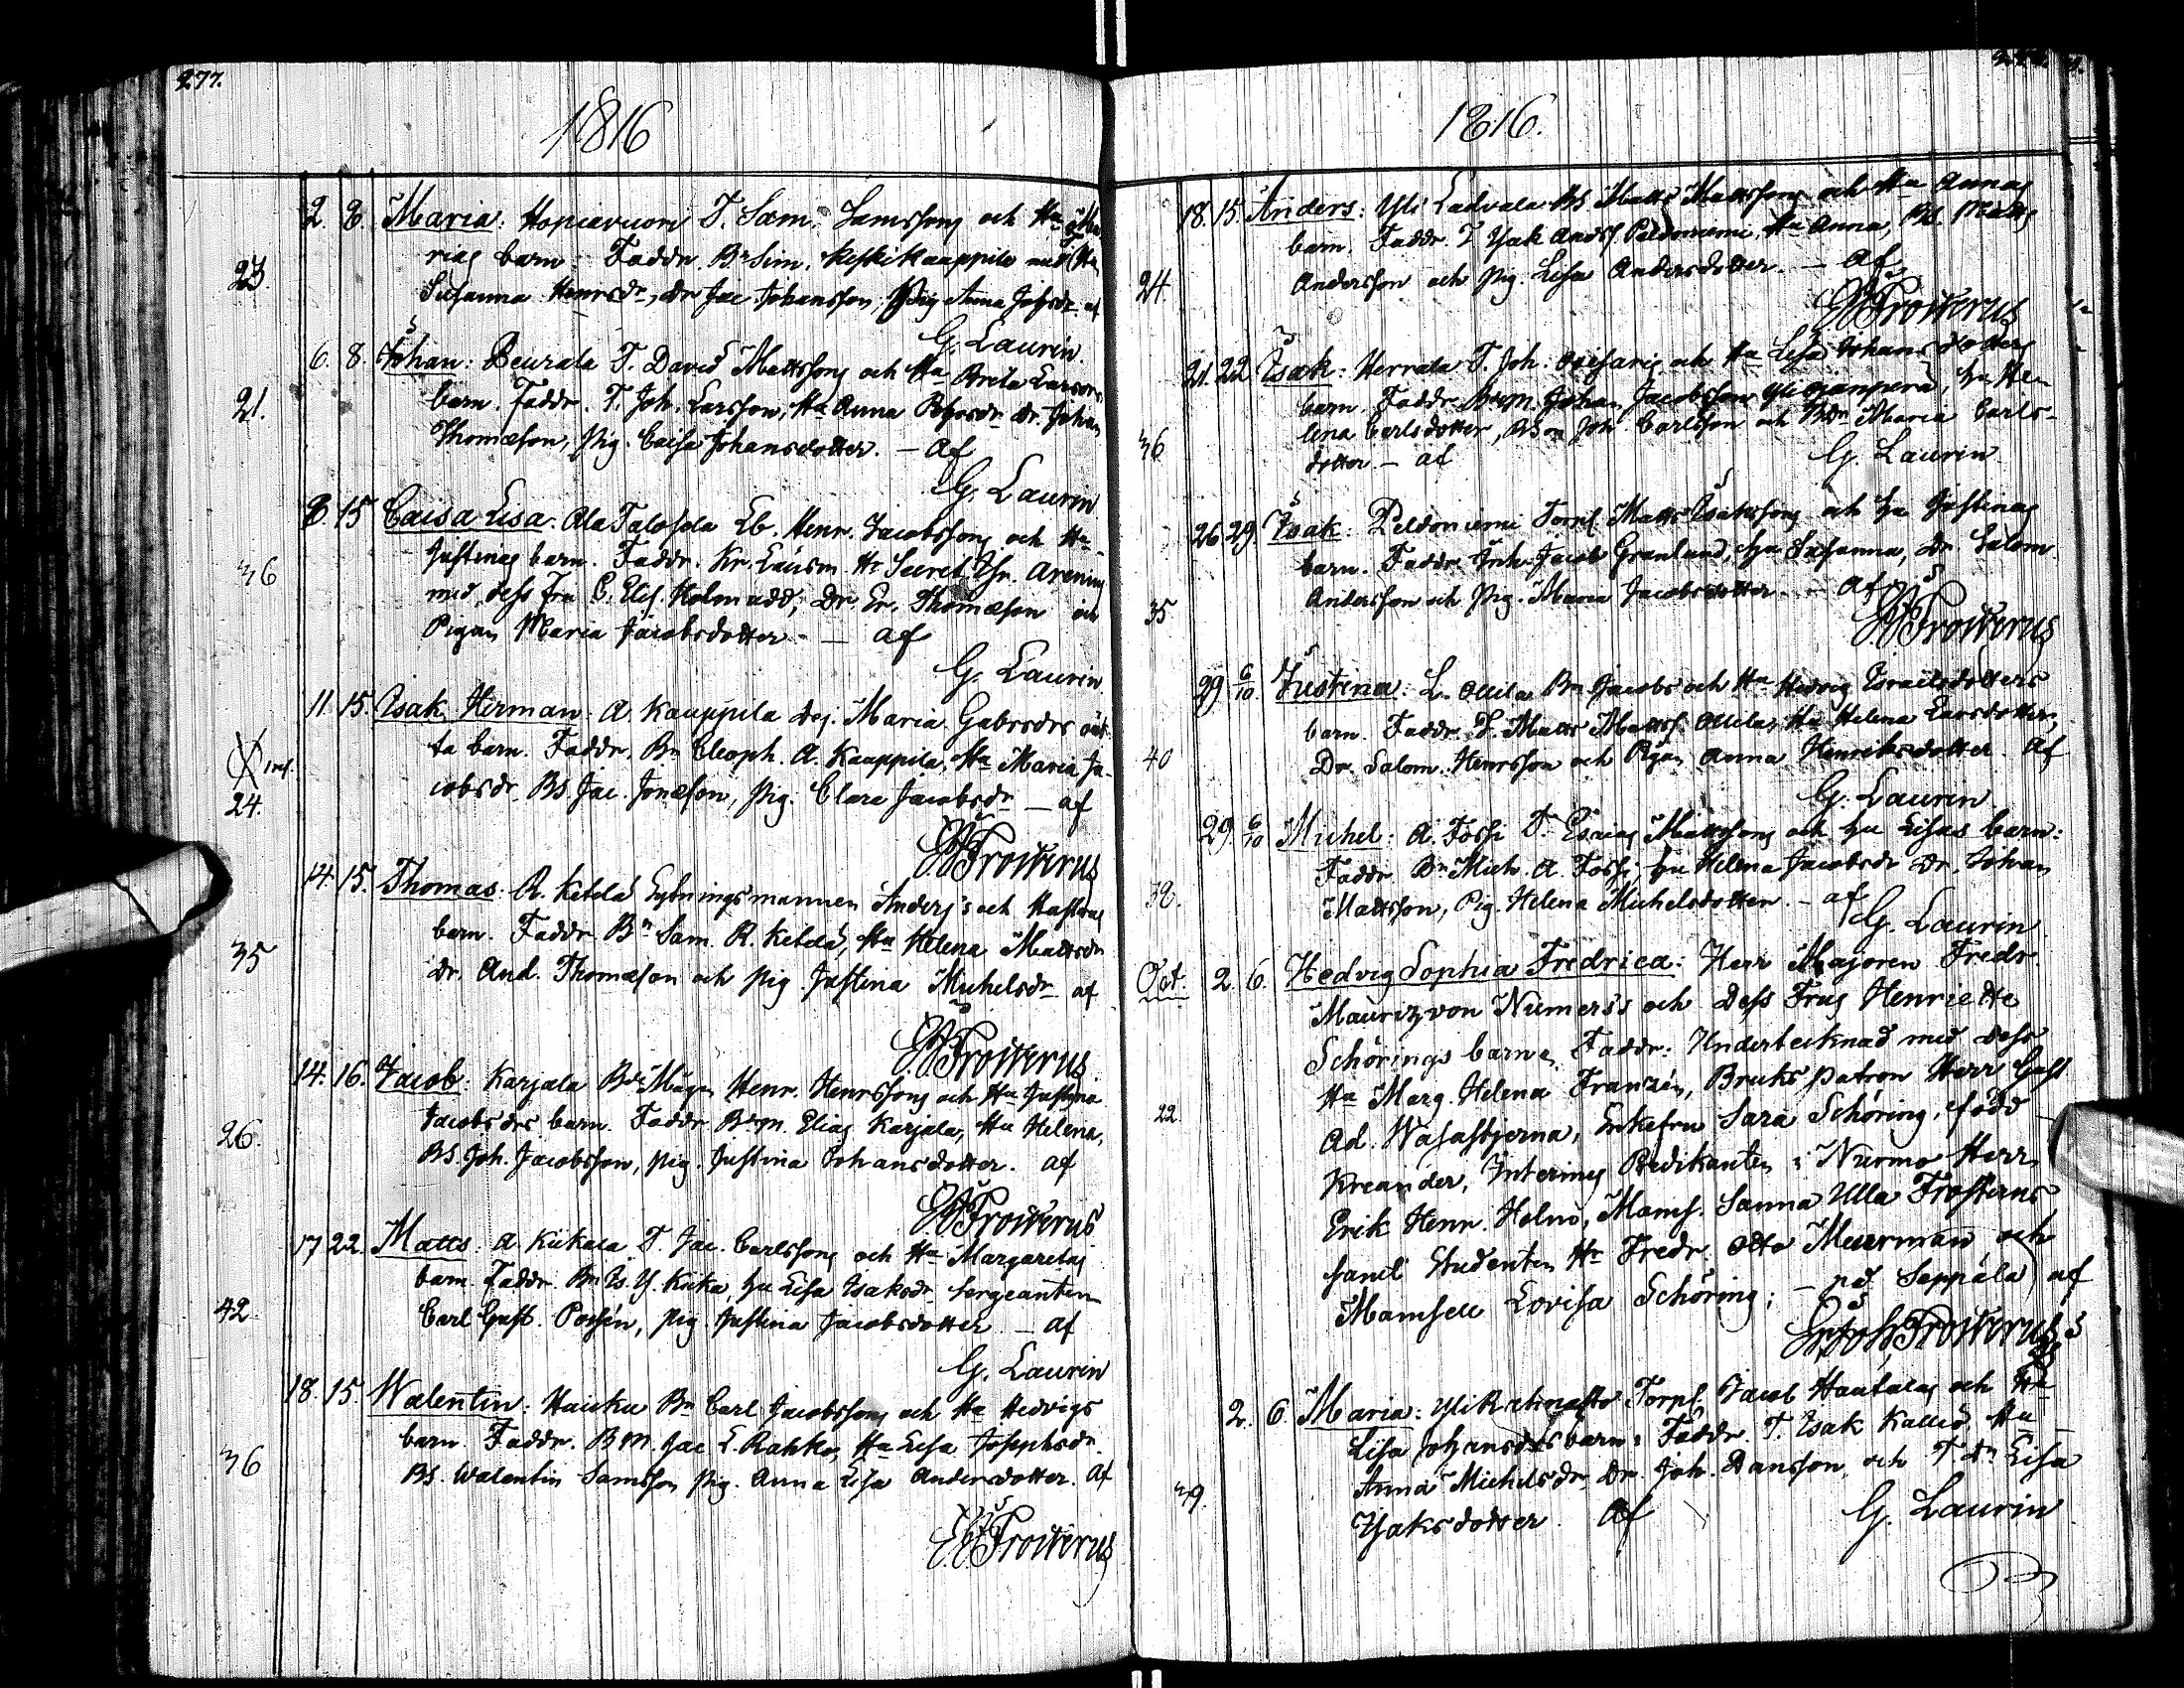 277.
1816
2. 8. Maria: Hopiavuori T. Sam. Samssons och Hu Ma
rias barn. Faddr. Bn Sim. Keskikauppila med Hu
23. Susanna Henrsdr, Dr Jac Johansson, Pig Anna Johsdr. af
G. Laurin.
6. 8. Johan: Beurala T. David Mattssons och Hu Breta Larsdrs
21. barn. Faddr. T. Joh. Larsson, Hu Anna Dr. Johan
Thomasson, Pig. Caisa Johansdotter. – af
G. Laurin
8 15 Caisa Lisa. Ala Talosela Eb. Henr. Jacobssons och Hu
36 Justinas barn. Faddr. Kr. Länsm. Hr Secret. Arenius
med dess Fru C. Elis. Holmudd, Dr Er. Thomasson och
Pigan Maria Jacobsdotter. – af
G. Laurin
11. 15. Isak Herman: A. Kauppila Dej. Maria Gabrsdrs oäk
ta barn. Faddr. Bn Cleoph. A. Kauppila, Hu Maria Ja-
24. cobsdr. Bs. Jac. Jonasson, Pig. Clara Jacobsdr – af
Frosterus
14. 15. Thomas: R. Ketola Sytningsmannen Anders's och Hustrus
35 barn. Faddr. Bn Sam. R. Ketola, Hu Helena Mattsdr
Dr. And. Thomasson och Pig Justina Michelsdr af
Frosterus
14. 16. Jacob: Karjala Bdmågn Henr. Henrssons och Hu Justina
26. Jacobsdrs barn. Faddr. Bdm. Elias Karjala, Hu Helena,
Bs. Joh. Jacobsson, Pig. Justina Johansdotter. af
Frosterus
17 22. Matts: A. Kiikala T. Jac. Carlssons och Hu Margaretas
barn. Faddr. Bn Is. Y. Kiika, Hu Lisa Isaksdr Sergeanten
42 Carl Gust. Possén, Pig. Justina Jacobsdotter – af
G. Laurin
18. 15. Walentin: Haicku Bn Carl Jacobssons och Hu Hedvigs
36 barn. Faddr. Bm. Jac L. Rahko, Hu Lisa Josephsdr.
Bs. Walentin Samsson Pig. Anna Lisa Andersdotter. Af
Frosterus
1816.
18. 15. Anders: Yli Ladvala Bs Matts Mattssons och Hu Annas
barn. Faddr. T Isak Andss. Peldoniemi, Hu Anna, Bs. Matts
24 Andersson och Pig. Lisa Andersdotter. – Af
Frosterus
21. 22 Isak: Herrala T. Joh. och Hu Lisa Johansdotters
barn. Faddr. Bdm. Johan Jacobsson Hu He-
36 lena Carlsdotter, Bson Joh. Carlsson och Bdr Maria Carls-
dotter – af
G. Laurin
26. 29. Isak: Peldoniemi Torp. Matts Isakssons och Hu Justinas
barn. Faddr. Inh. Jacob Granlund, Hu Susanna, Dr. Salom.
35 Andersson och Pig. Maria Jacobsdotter. – Af
Frosterus
29 6/10. Justina: L. Ollila Bn Jacobs och Hu Hedvig Israelsdotters
barn. Faddr. T. Matts Mattss. Ollila, Hu Helena Larsdotter,
40 Dr. Salom. Henrsson och Pigan Anna Henriksdotter. Af
G. Laurin
29. 6/10 Michel: A. Fossi T. Esaias Mattssons och Hu Lisas barn:
Faddr. Bn Mich. A. Fossi, Hu Helena Jacobsdr Dr. Johan
32. Mattsson, Pig. Helena Michelsdotter. – af
G. Laurin
Oct. 2. 6. Hedvig Sophia Fredrica: Herr Majoren Fredr.
Mauritz von Numers's och Dess Frus Henriette
Schörings barn. Faddr: Undertecknad med dess
Hu Marg. Helena Franzén, Bruks patron Herr Gust
22. Ad. Wasastjerna, Enkefru Sara Schöring, född
Kreander, Interims Predikanten i Nurmo Herr
Erik Henr. Holm, Mams. Sanna Ulla Frosterus
samt Studenten Hr Fredr. Otto Meurman och
Mamsell Lovisa Schöring; – på Seppälä af
Frosterus
2. 6. Maria: Torp. Jacob Hautalas och Hu
Lisa Johansdrs barn: Faddr. T. Isak Kallio, Hu
49. Anna Michelsdr, Dr. Joh. Dansson, och T. Dr Lisa
Isaksdotter. Af
G. Laurin